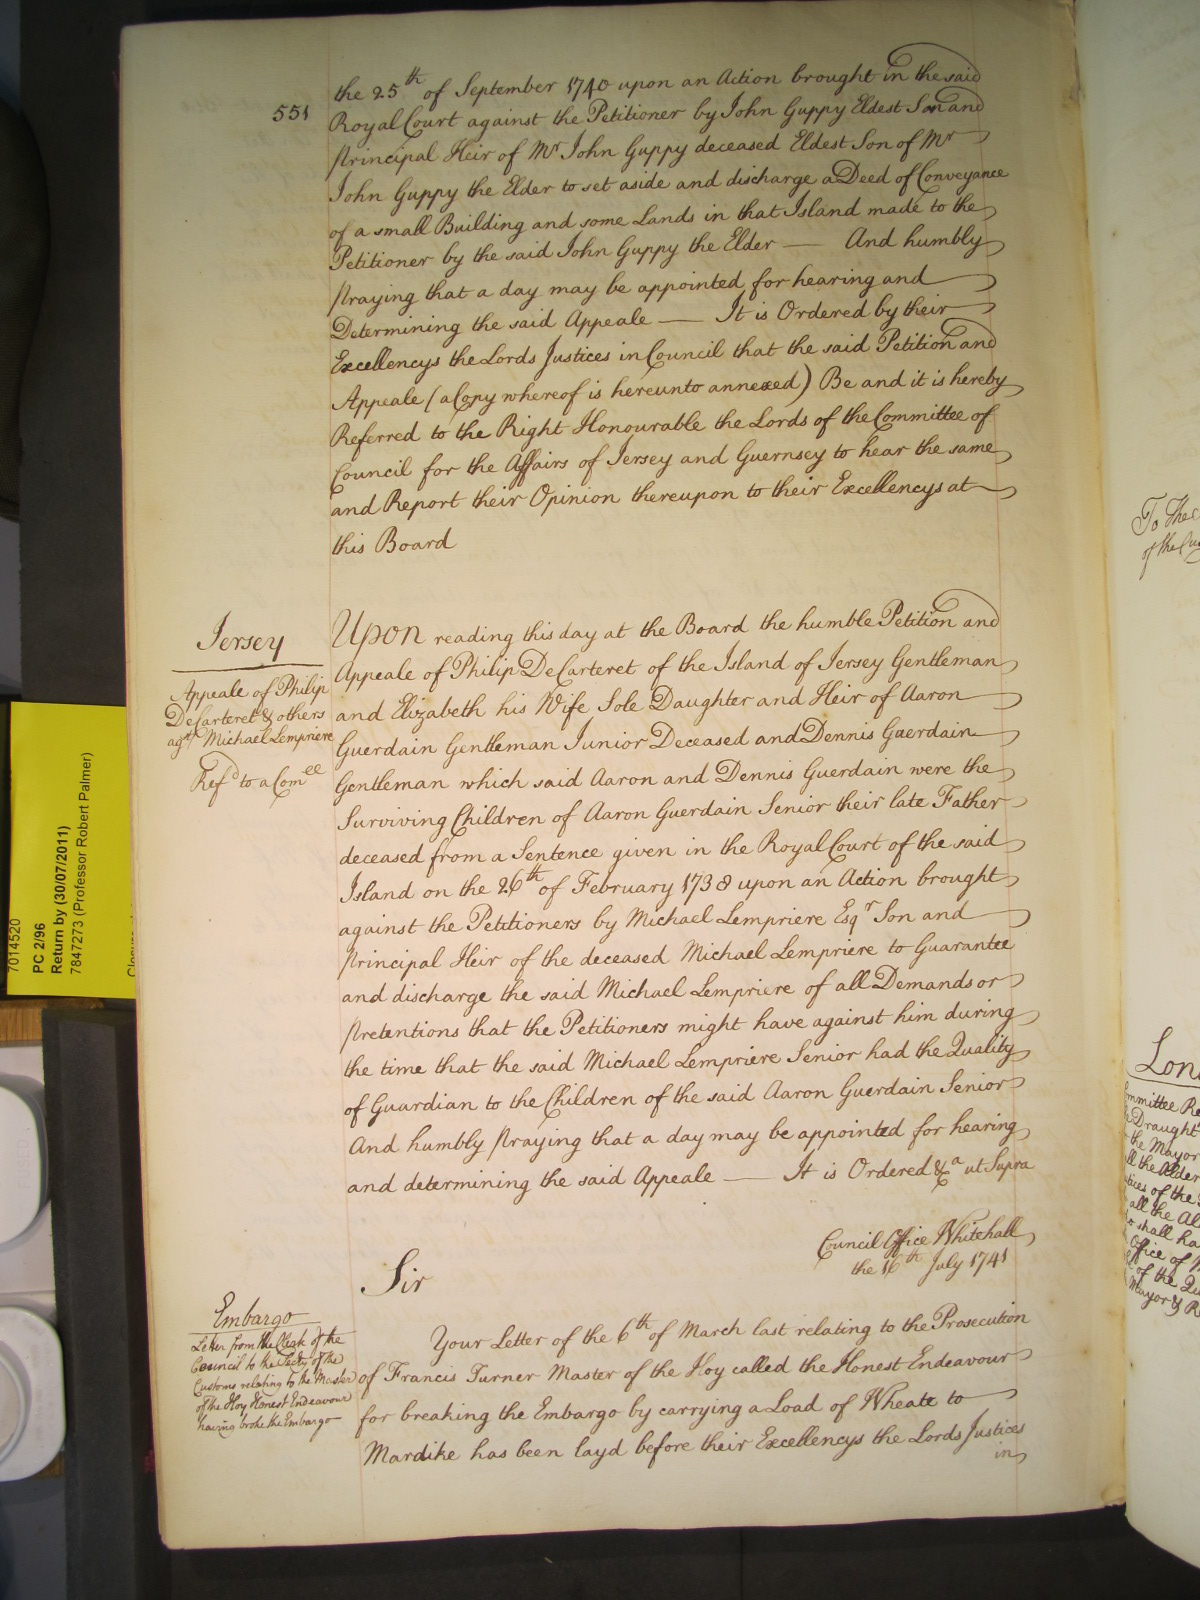 551
the 25th of September 1740 upon an Action brought in the said
Royal Court against the Petitioner by John Guppy Eldest Son and
Principal Heir of Mr John Guppy deceased Eldest Son of Mr
John Guppy the Elder to set aside and discharge a Deed of Conveyance
of a small Building and some Lands in that Island made to the
Petitioner by the said John Guppy the Elder — And humbly
Praying that a day may be appointed for hearing and
Determining the said Appeale — It is Ordered by their
Excellencys the Lords Justices in Council that the said Petition and
Appeale (a Copy whereof is hereunto annexed) Be and it is hereby
Referred to the Right Honourable the Lords of the Committee of
Council for the Affairs of Jersey and Guernsey to hear the same
and Report their Opinion thereupon to their Excellencys at
this Board
Jersey
Appeale of Philip
DeCarteret & others
agt Michael Lempriere
Refd to a Comee
Upon reading this day at the Board the humble Petition and
Appeale of Philip DeCarteret of the Island of Jersey Gentleman
and Elizabeth his Wife Sole Daughter and Heir of Aaron
Guerdain Gentleman Junior Deceased and Dennis Guerdain
Gentleman which said Aaron and Dennis Guerdain were the
Surviving Children of Aaron Guerdain Senior their late Father
deceased from a Sentence given in the Royal Court of the said
Island on the 26th of February 1738 upon an Action brought
against the Petitioners by Michael Lempriere Esqr Son and
Principal Heir of the deceased Michael Lempriere to Guarantee
and discharge the said Michael Lempriere of all Demands or
Pretentions that the Petitioners might have against him during
the time that the said Michael Lempriere Senior had the Quality
of Guardian to the Children of the said Aaron Guerdain Senior
And humbly Praying that a day may be appointed for hearing
and determining the said Appeale — It is Ordered &a ut Supra
Council Office Whitehall
the 16th July 1741
Sir
Embargo
Letter from the Clerk of the
Council to the Secty of the
Customs relating to the Master
of the Hoy Honest Endeavour
having broke the Embargo
Your Letter of the 6th of March last relating to the Prosecution
of Francis Turner Master of the Hoy called the Honest Endeavour
for breaking the Embargo by carrying a Load of Wheate to
Mardike has been layd before their Excellencys the Lords Justices
in
7014520
PC 2/96
Return by (30/07/2011)
7847273 (Professor Robert Palmer)
To the
of the
Lon
mmittee Re
Draught
the Mayor
all the Alder
of the
all the Al
shall ha
Office of
of the Qu
Mayor &